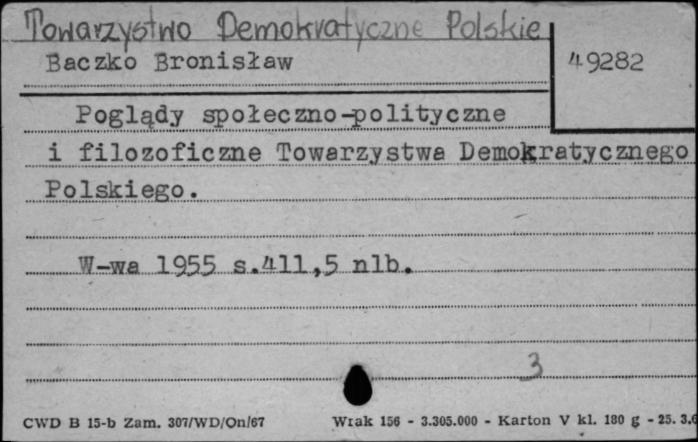 Towarzystwo Demokratyczne Polskie
Baczko Bronisław
49282
Poglądy społeczno-polityczne
i filozoficzne Towarzystwa Demokratycznego
Polskiego.
W-wa 1955 s.411,5 nlb.
3
CWD B 15-b Zam. 307/WD/On/67
Wrak 156 - 3.305.000 - Karton V kl. 180 g - 25.3.6